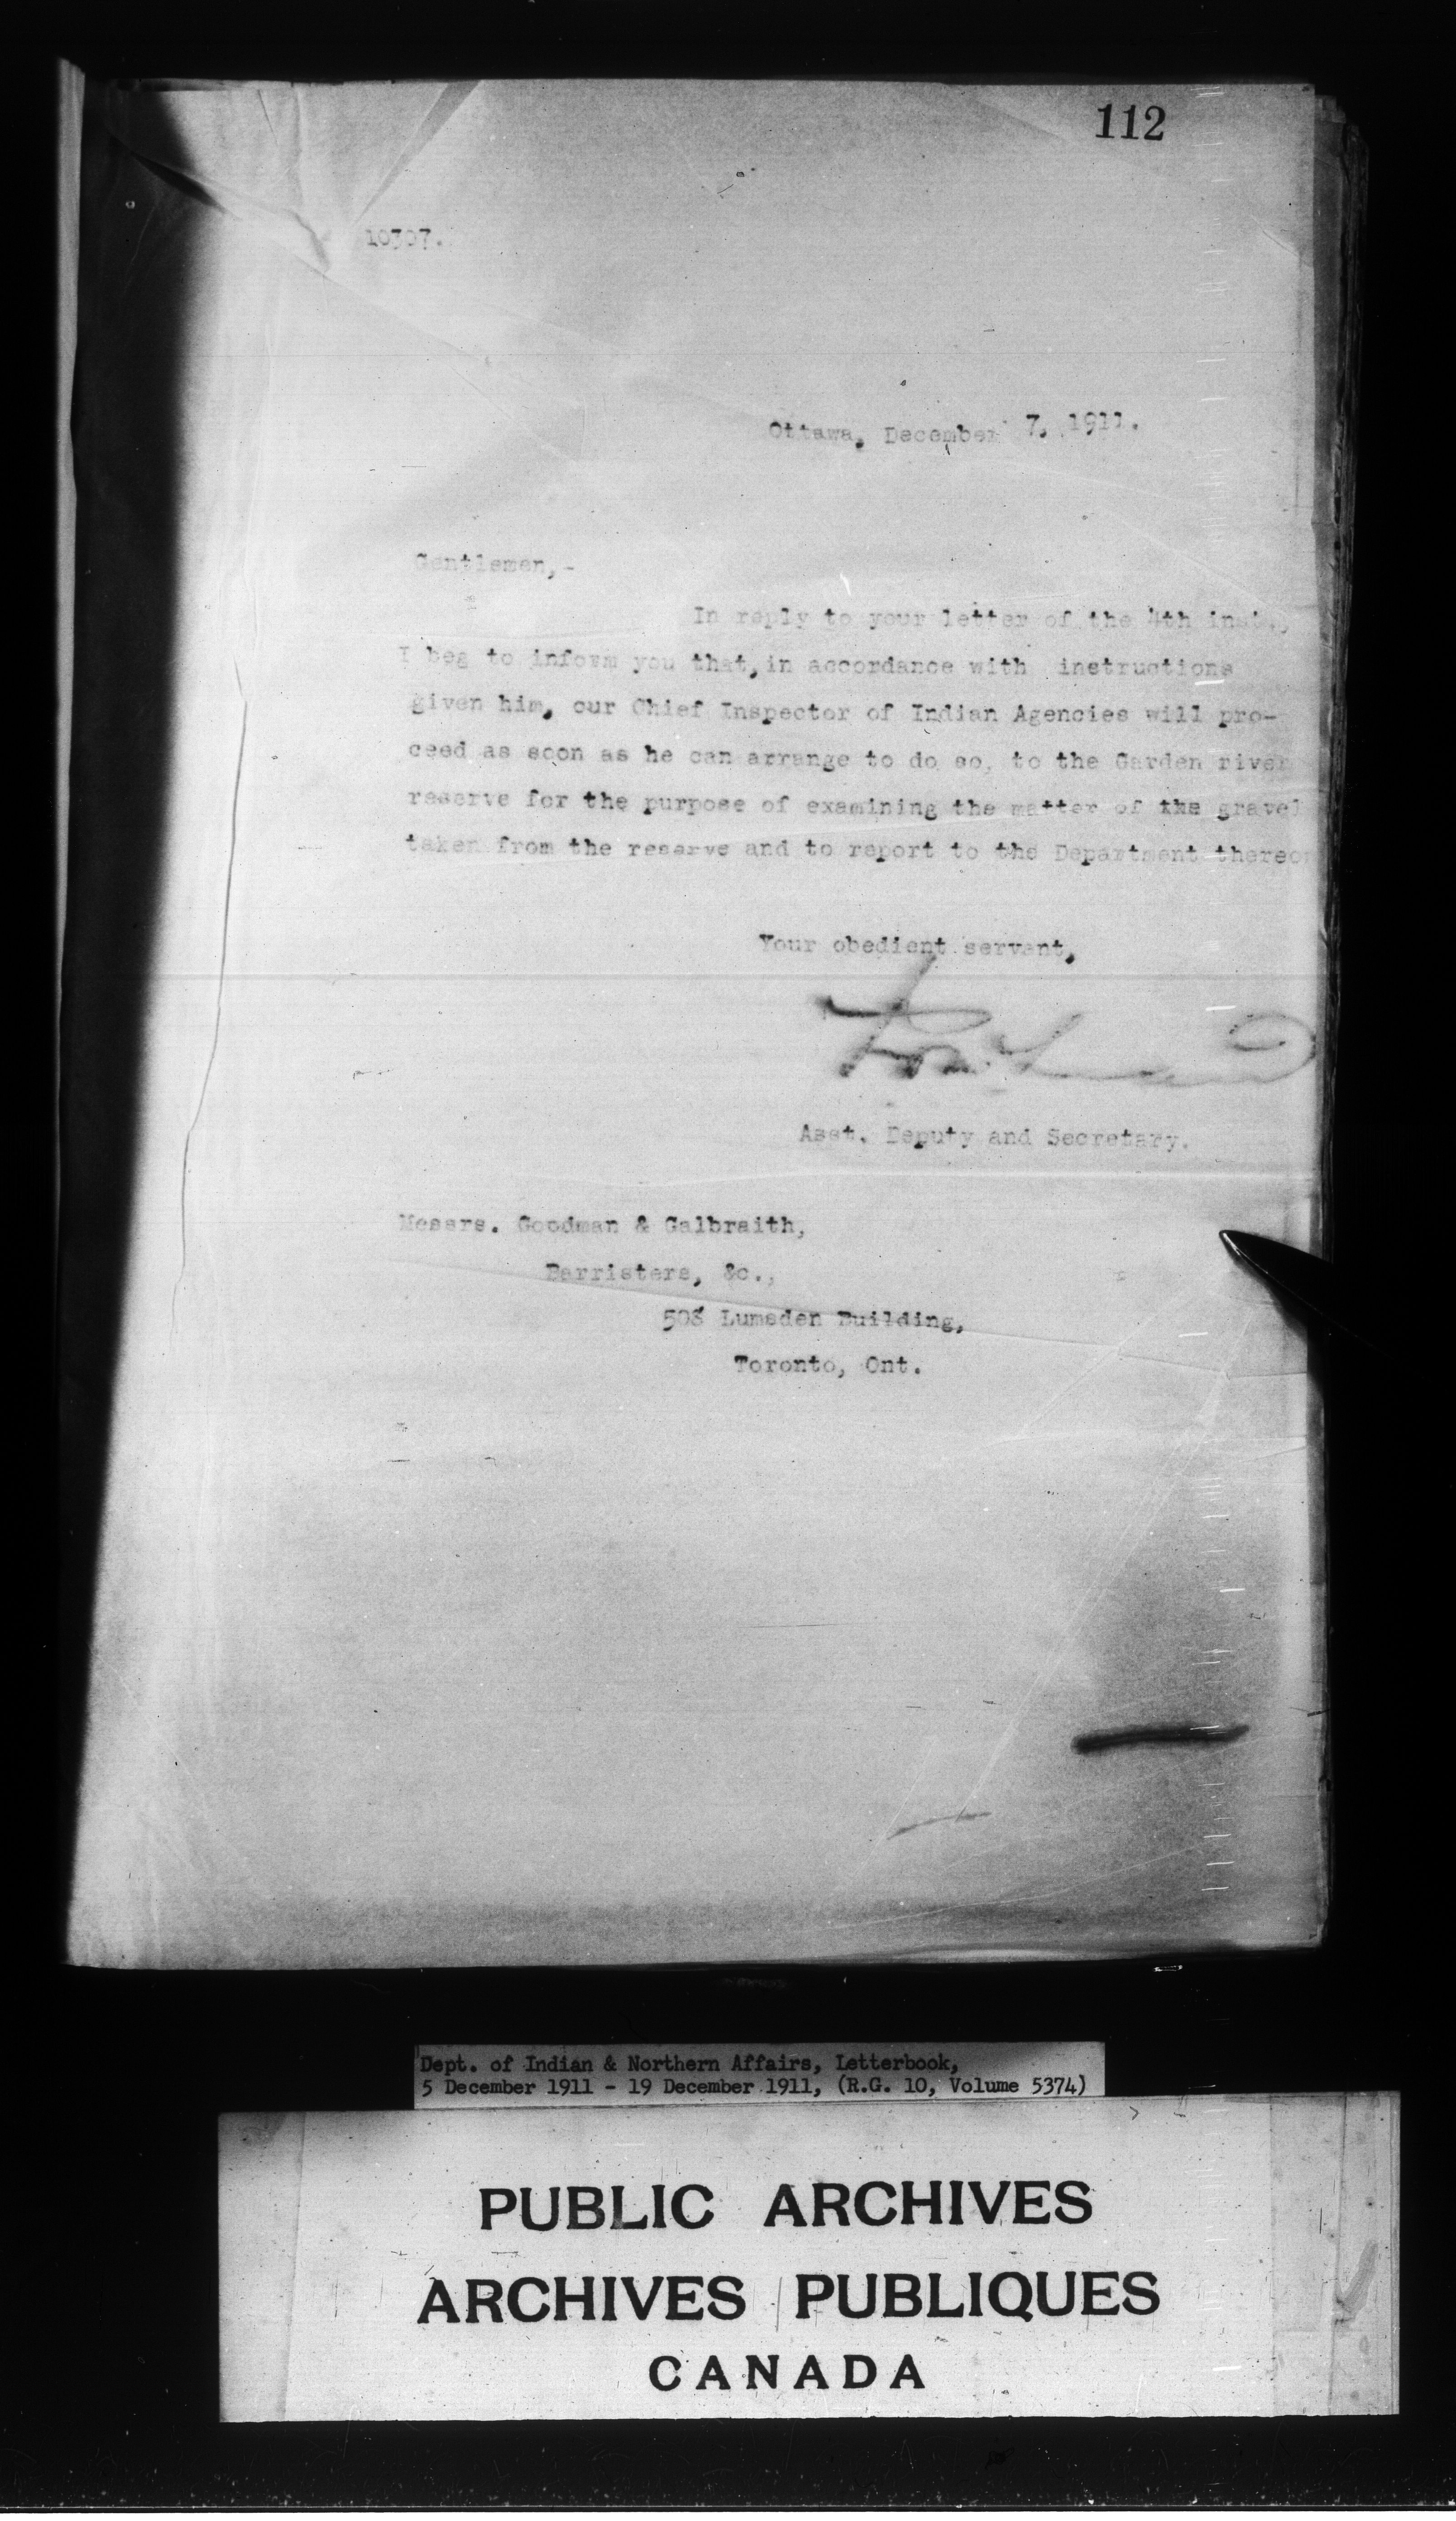 112
10307.
Ottawa, December 7, 1911.
Gentlemen,-
In reply to your letter of the 4th inst.,
I beg to inform you that, in accordance with instructions
given him, our Chief Inspector of Indian Agencies will pro-
ceed as soon as he can arrange to do so, to the Garden river
reserve for the purpose of examining the matter of the gravel
taken from the reserve and to report to the Department thereon
Your obedient servant,
Asst. Deputy and Secretary.
Messrs. Goodman & Galbraith,
Barristers, &c.,
508 Lumsden Building,
Toronto, Ont.
Dept. of Indian & Northern Affairs, Letterbook,
5 December 1911 - 19 December 1911, (R.G. 10, Volume 5374)
PUBLIC ARCHIVES
ARCHIVES PUBLIQUES
CANADA